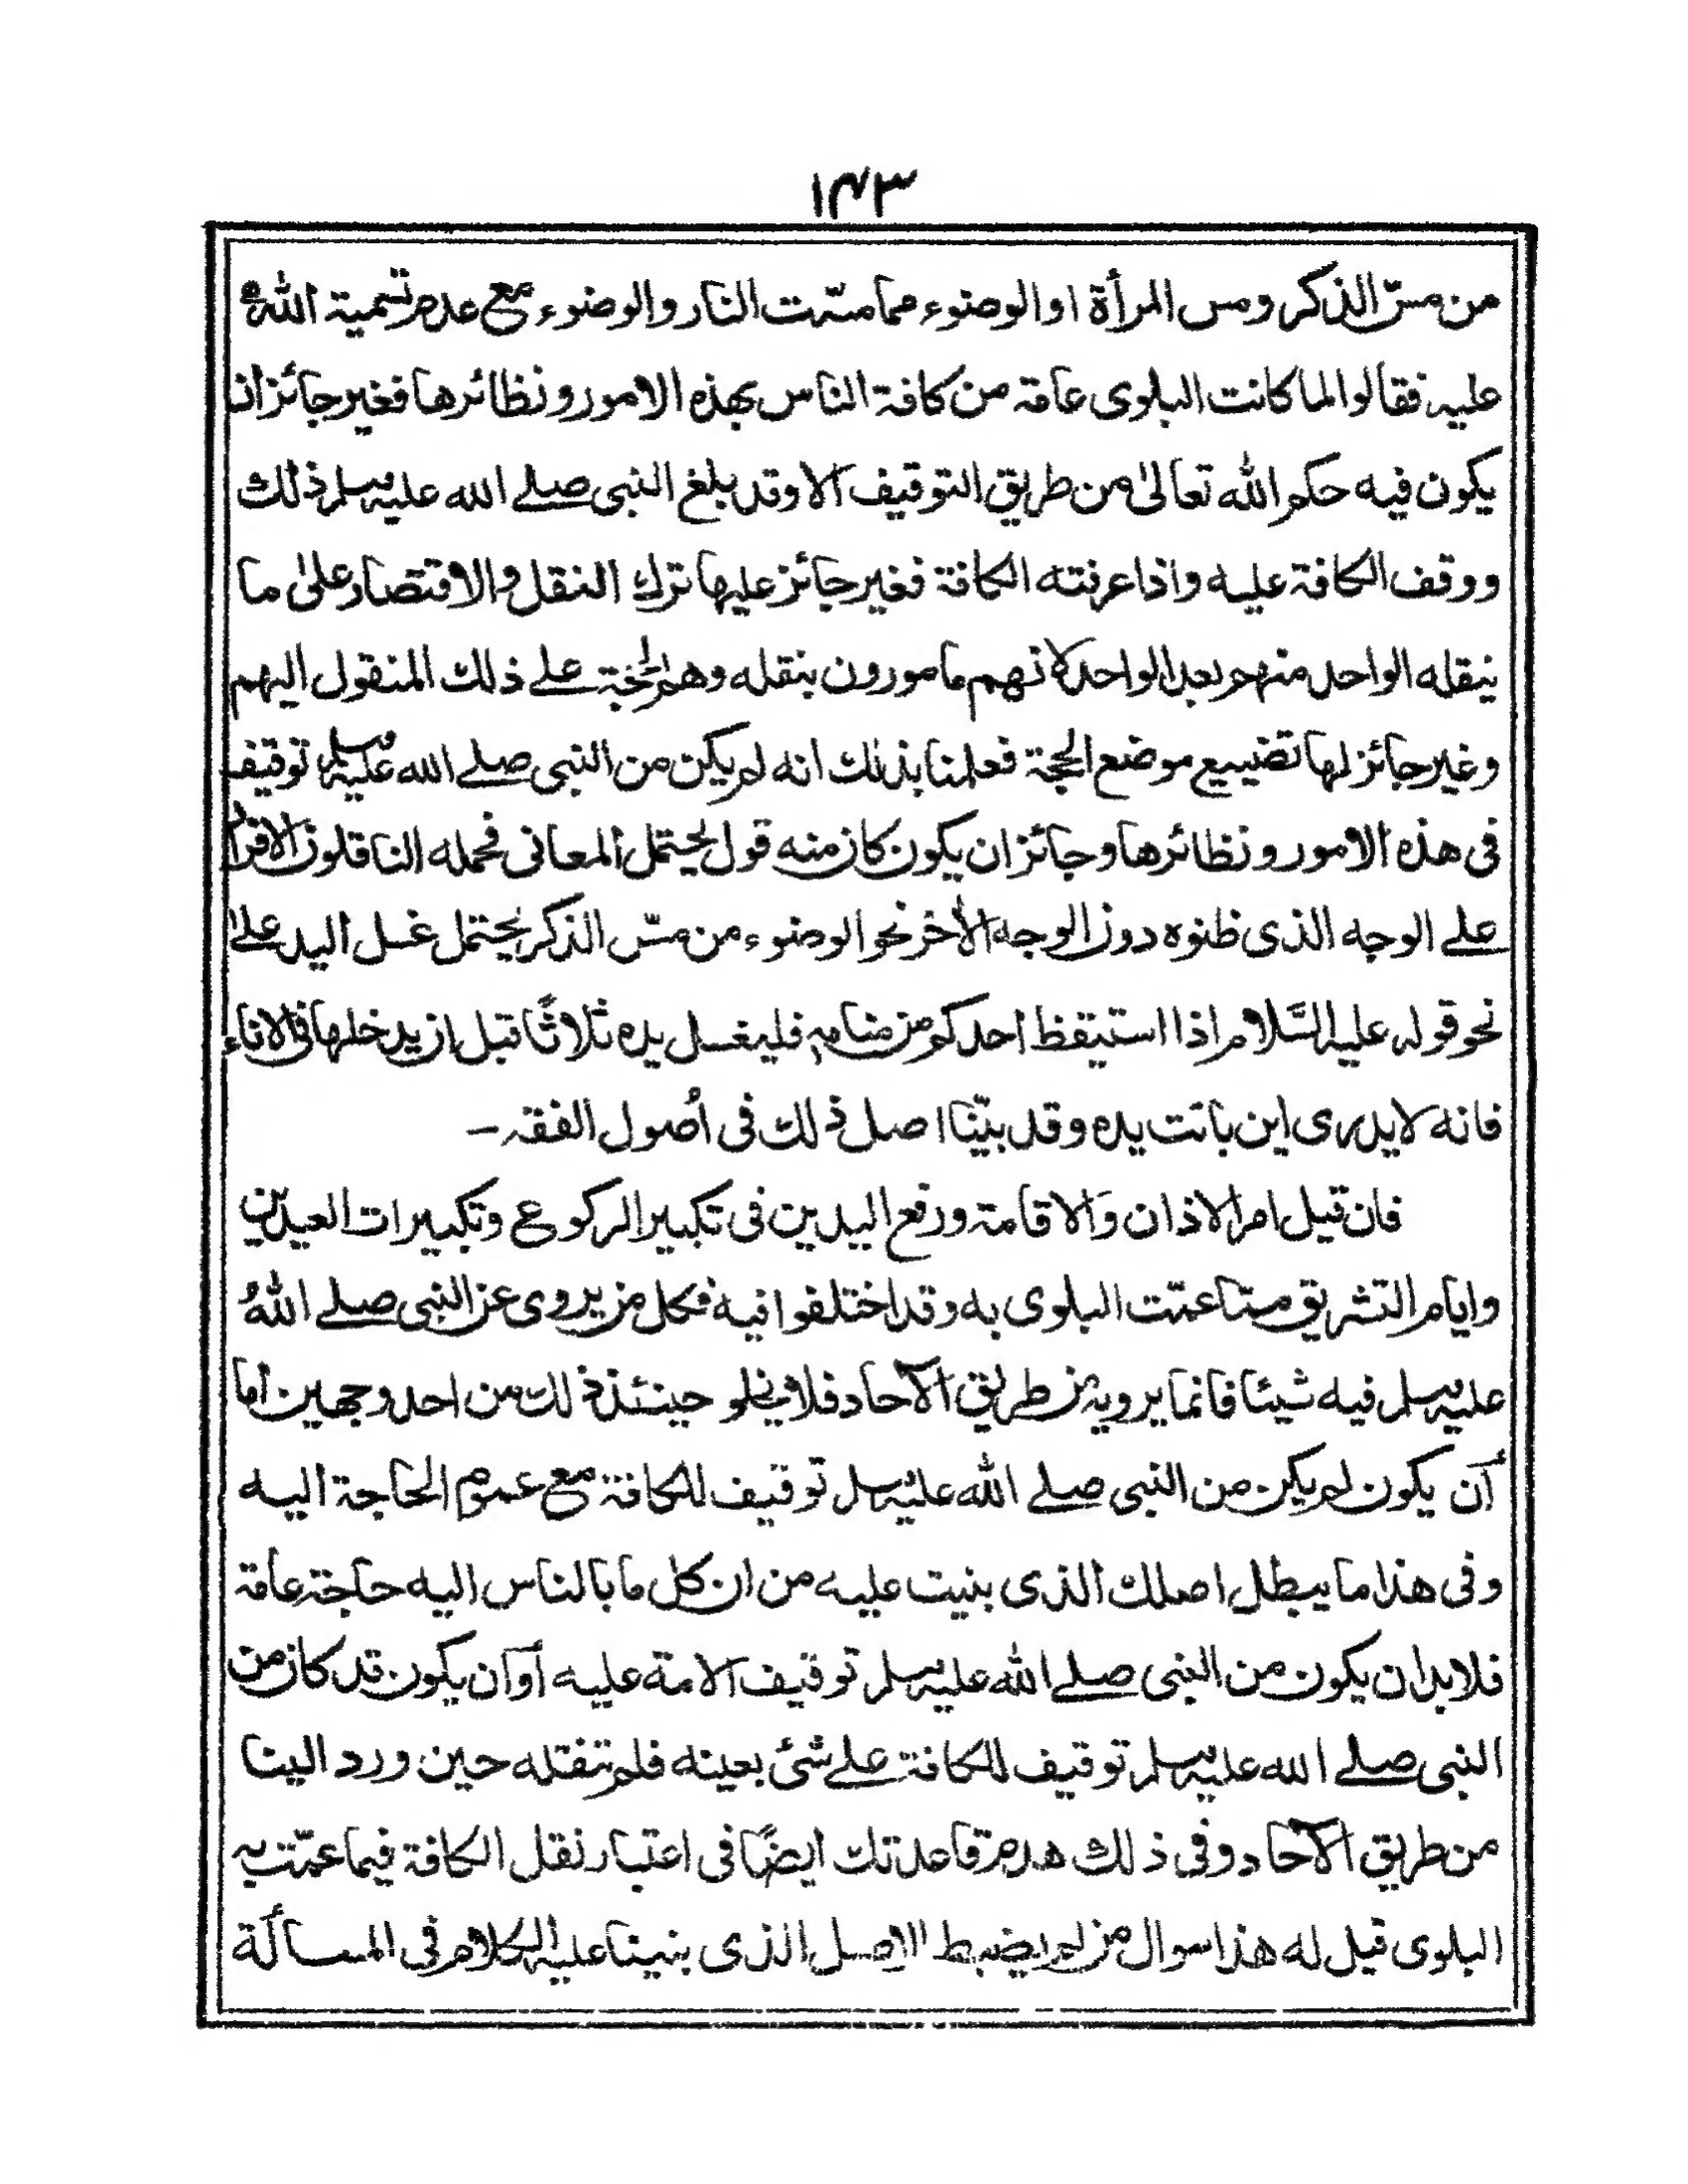 ١٤٣
من مسّ الذكر ومس المرأة او الوضوء مما مسّت النار والوضوء مع عدم تسمية الله
عليه فقالوا لما كانت البلوى عامة من كافة الناس بهذه الامور ونظائرها فغير جائز ان
يكون فيه حكم الله تعالىٰ من طريق التوقيف الا وقد بلغ النبى صلے الله عليه وسلم ذلك
ووقف الكافة عليه واذا عرفته الكافة فغير جائز عليها ترك النقل والاقتصار علىٰ ما
ينقله الواحد منهم بعد الواحد لانهم مامورون بنقله وهم الحجة علے ذلك المنقول اليهم
وغير جائز لها تضييع موضع الحجة فعلمنا بذلك انه لم يكن من النبى صلے الله عليه وسلم توقيف
فى هذه الامور ونظائرها وجائز ان يكون كان منه قول يحتمل المعانى فحمله الناقلون الافراد
علے الوجه الذى ظنوه دون الوجه الأخر نحو الوضوء من مسّ الذكر يحتمل غسل اليد علىٰ
نحو قوله عليه السَّلام اذا استيقظ احدكم من منامه فليغسل يده ثلاثًا قبل ان يدخلها فى الاناء
فانه لا يدرى اين باتت يده وقد بيّنا اصل ذلك فى اُصول الفقه –
فان قيل امر الاذان والاقامة ورفع اليدين فى تكبير الركوع وتكبيرات العيدين
وايام التشريق مما عمّت البلوى به وقد اختلفوا فيه فكل من يروى عن النبى صلے اللهُ
عليه وسلم فيه شيئا فانما يرويه من طريق الآحاد فلا يخلو حينئذ ذلك من احد وجهين اما
أن يكون لم يكن من النبى صلے الله عليه وسلم توقيف للكافة مع عموم الحاجة اليه
وفى هذا ما يبطل اصلك الذى بنيت عليه من ان كل ما بالناس اليه حاجة عامة
فلابد ان يكون من النبى صلے الله عليه وسلم توقيف الامة عليه أو ان يكون قد كان من
النبى صلے الله عليه وسلم توقيف للكافة علے شئ بعينه فلم تنقله حين ورد الينا
من طريق الآحاد وفى ذلك هدم قاعدتك ايضًا فى اعتبار نقل الكافة فيما عمّت به
البلوى قيل له هذا سوال من لم يضبط الاصل الذى بنينا عليه الكلام فى المسألة